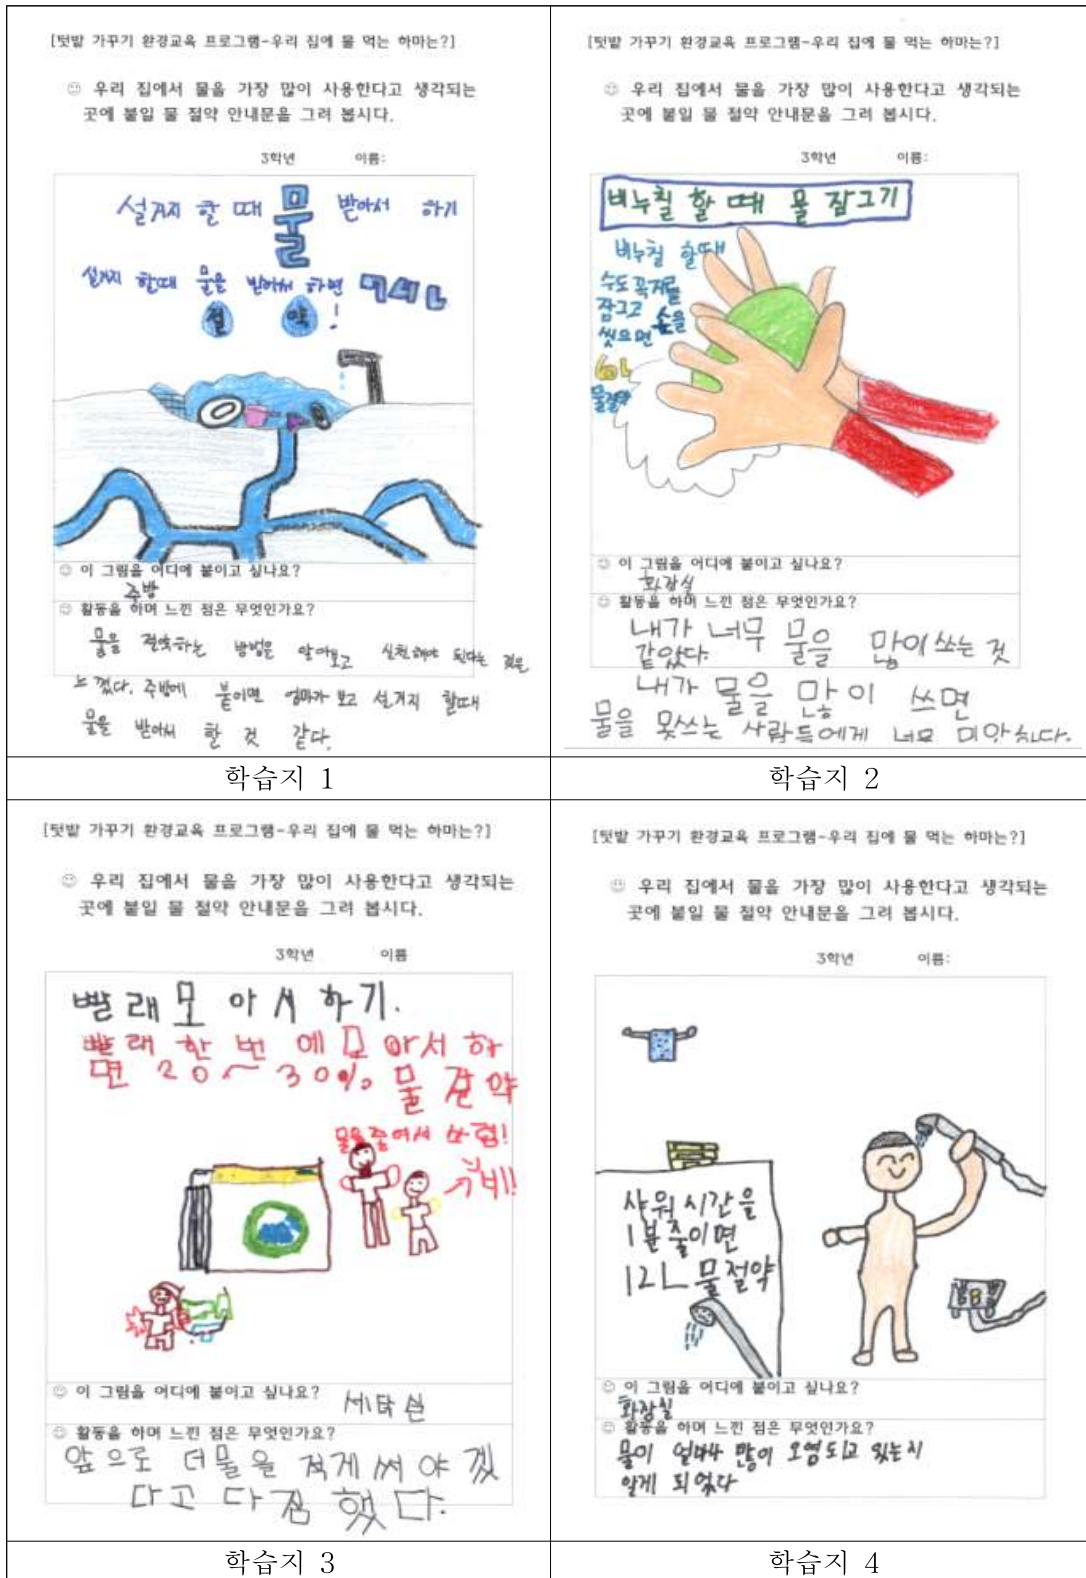 [텃밭 가꾸기 환경교육 프로그램-우리 집에 물 먹는 하마는?]
☺ 우리 집에서 물을 가장 많이 사용한다고 생각되는
곳에 붙일 물 절약 안내문을 그려 봅시다.
3학년 이름:
설거지 할 때 물 받아서 하기
설거지 할때 물을 받아서 하면
절 약!
☺ 이 그림을 어디에 붙이고 싶나요?
주방
☺ 활동을 하며 느낀 점은 무엇인가요?
물을 절약하는 방법을 알아보고 실천해야 된다는 것을
느꼈다. 주방에 붙이면 엄마가 보고 설거지 할때
물을 받아서 할 것 같다.
학습지 1
[텃밭 가꾸기 환경교육 프로그램-우리 집에 물 먹는 하마는?]
☺ 우리 집에서 물을 가장 많이 사용한다고 생각되는
곳에 붙일 물 절약 안내문을 그려 봅시다.
3학년 이름:
비누칠 할 때 물 잠그기
비누칠 할때
수도꼭지를
잠그고 손을
씻으면
6L
물절약
☺ 이 그림을 어디에 붙이고 싶나요?
화장실
☺ 활동을 하며 느낀 점은 무엇인가요?
내가 너무 물을 많이 쓰는 것
같았다.
내가 물을 많이 쓰면
물을 못쓰는 사람들에게 너무 미안하다.
학습지 2
[텃밭 가꾸기 환경교육 프로그램-우리 집에 물 먹는 하마는?]
☺ 우리 집에서 물을 가장 많이 사용한다고 생각되는
곳에 붙일 물 절약 안내문을 그려 봅시다.
3학년 이름
빨래 모아서하기.
빨래 한 번에 모아서 하
면 20~30% 물 절약
물을 줄여서
☺ 이 그림을 어디에 붙이고 싶나요?
세탁실
☺ 활동을 하며 느낀 점은 무엇인가요?
앞으로 더물을 적게 써야 겠
다고 다짐 했다.
학습지 3
[텃밭 가꾸기 환경교육 프로그램-우리 집에 물 먹는 하마는?]
☺ 우리 집에서 물을 가장 많이 사용한다고 생각되는
곳에 붙일 물 절약 안내문을 그려 봅시다.
3학년 이름:
샤워시간을
1분줄이면
12L 물절약
☺ 이 그림을 어디에 붙이고 싶나요?
화장실
☺ 활동을 하며 느낀 점은 무엇인가요?
물이 얼마나 많이 오염되고 있는지
알게 되었다
학습지 4